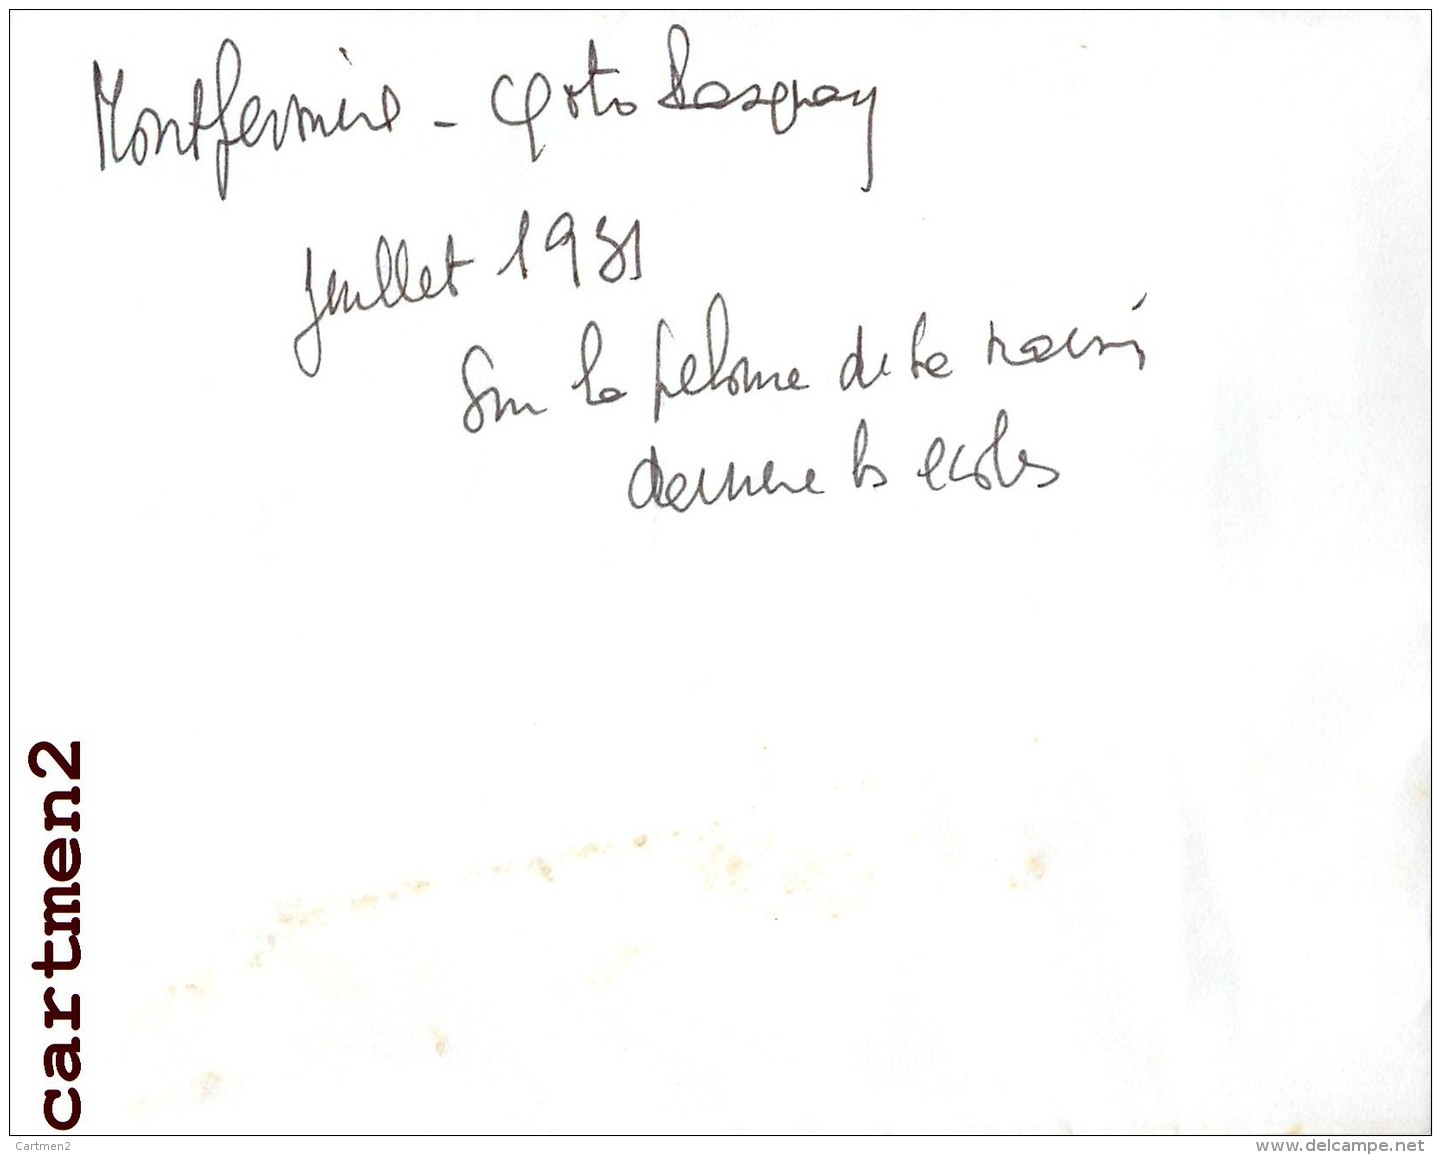 Montfermeil - Photo
Juillet 1981
Sur la pelouse de la mairie
derrière les écoles
cartmen2
Cartmen2
www.delcampe.net